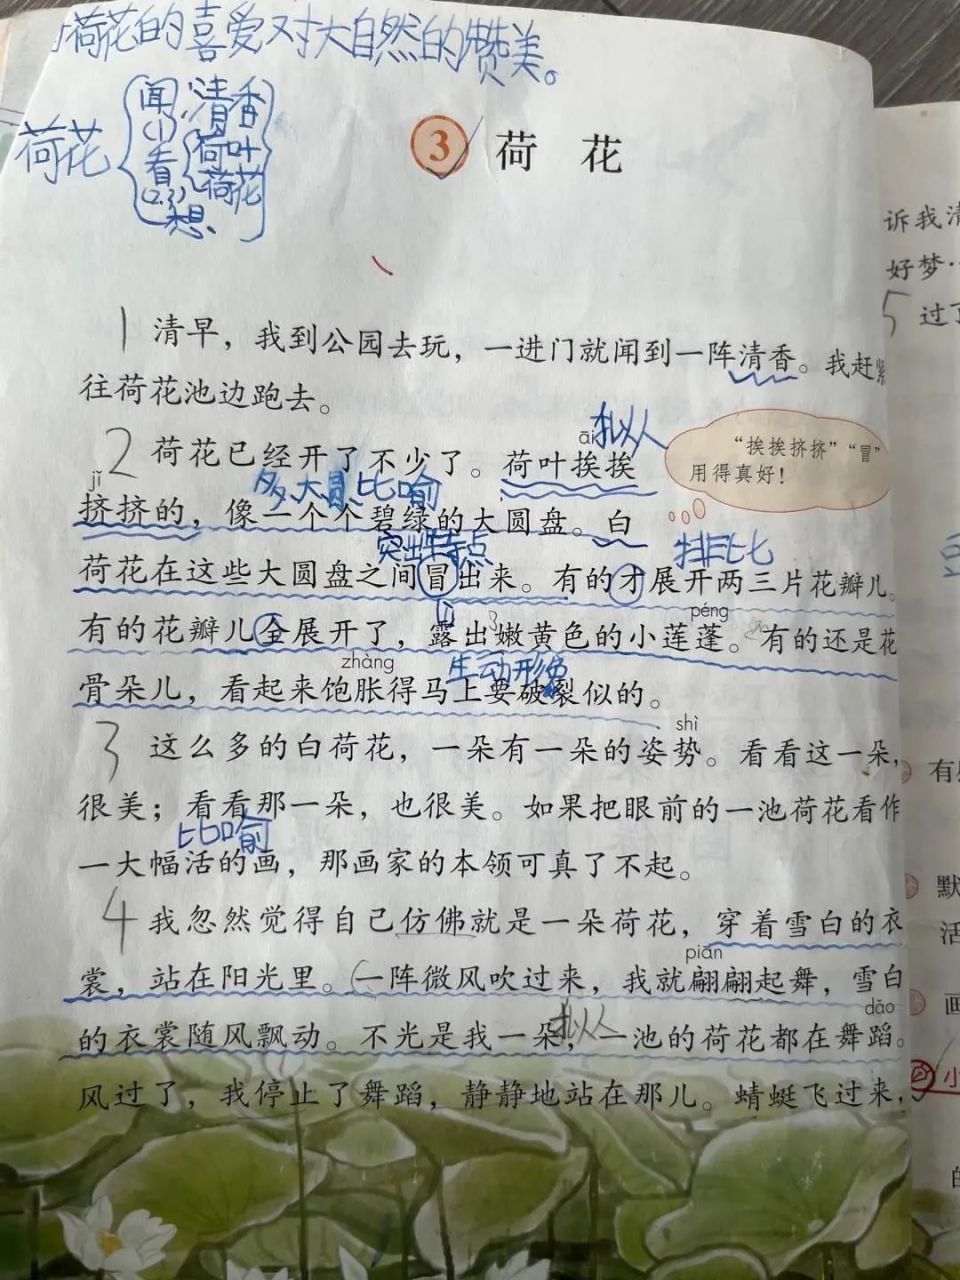 荷花的喜爱对大自然的赞美。
荷花
闻 清香
(1) 荷叶
看 荷花
(2.3)
想
3 荷 花
1 清早，我到公园去玩，一进门就闻到一阵清香。我赶紧
往荷花池边跑去。
āi 拟人
2 荷花已经开了不少了。荷叶挨挨
“挨挨挤挤”“冒”
用得真好！
jǐ
多、大、圆 比喻
挤挤的，像一个个碧绿的大圆盘。白
突出特点 排比
荷花在这些大圆盘之间冒出来。有的才展开两三片花瓣儿。
péng
有的花瓣儿全展开了，露出嫩黄色的小莲蓬。有的还是花
zhàng 生动形象
骨朵儿，看起来饱胀得马上要破裂似的。
shì
3 这么多的白荷花，一朵有一朵的姿势。看看这一朵，
很美；看看那一朵，也很美。如果把眼前的一池荷花看作
比喻
一大幅活的画，那画家的本领可真了不起。
4 我忽然觉得自己仿佛就是一朵荷花，穿着雪白的衣
piān
裳，站在阳光里。一阵微风吹过来，我就翩翩起舞，雪白
拟人 dǎo
的衣裳随风飘动。不光是我一朵，一池的荷花都在舞蹈。
风过了，我停止了舞蹈，静静地站在那儿。蜻蜓飞过来，
诉我清
好梦…
5 过了
有
默
活
画
小
的